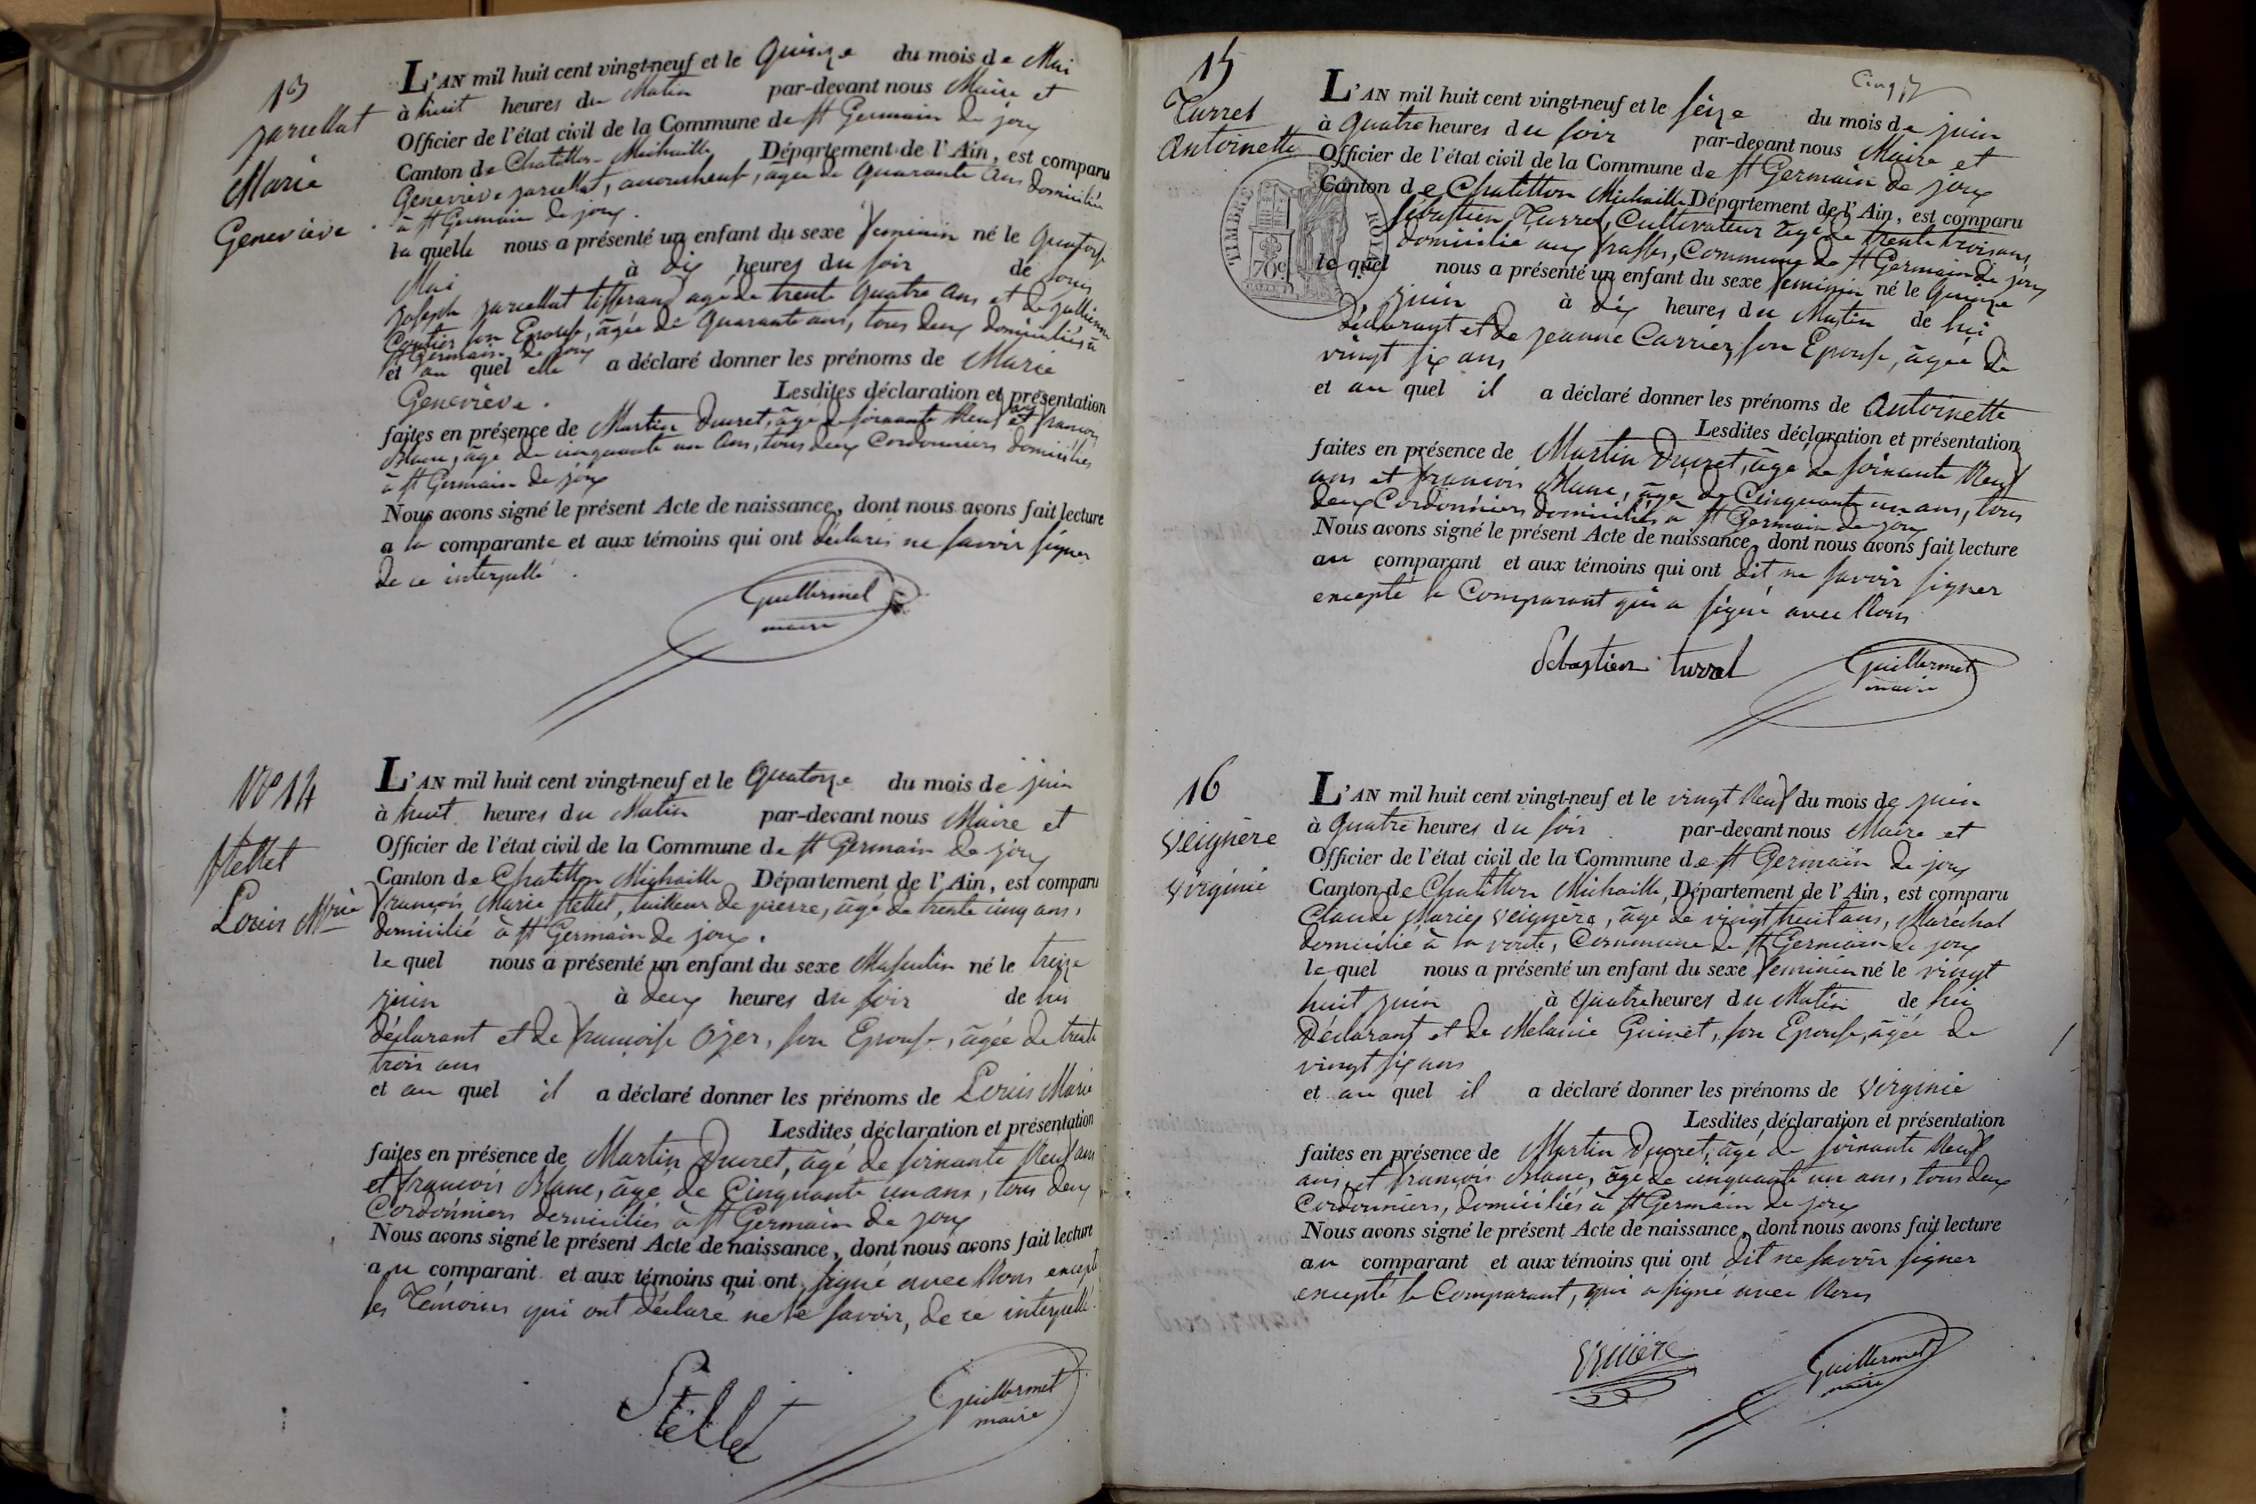 13
jarcellat
Marie
Geneviève.
L'AN mil huit cent vingt-neuf et le Quinze du mois de Mai
à huit heures du Matin par-devant nous Maire et
Officier de l'état civil de la Commune de St Germain de joux
Canton de Chatillon-Michaille Département de l'Ain, est comparu
Geneviève jarcellat, accoucheuse, agée de Quarante ans domiciliée
à St Germain de joux.
la quelle nous a présenté un enfant du sexe feminin né le Quatorze
Mai à dix heures du soir de
Joseph jarcellat tisserand agé de trente quatre ans et de jullienne
son Epouse, âgée de Quarante ans, tous deux domiciliés à
St Germain de joux
et au quel elle a déclaré donner les prénoms de Marie
Geneviève.
Lesdites déclaration et présentation
faites en présence de Martin Ducret, âgé de soixante Neuf ans et francois
Blanc, âgé de cinquante un ans, tous deux Cordonniers domiciliés
à St Germain de joux
Nous avons signé le présent Acte de naissance, dont nous avons fait lecture
a la comparante et aux témoins qui ont déclarés ne savoir signer
de ce interpellé.
Guillermet
maire
N° 14
Stellet
Louis Mrie
L'AN mil huit cent vingt-neuf et le Quatorze du mois de juin
à huit heures du Matin par-devant nous Maire et
Officier de l'état civil de la Commune de St Germain de joux
Canton de Chatillon Michaille Département de l'Ain, est comparu
francois Marie Stellet, tailleur de pierre, âgé de trente cinq ans,
domicilié à St Germain de joux.
le quel nous a présenté un enfant du sexe Masculin né le treize
juin à deux heures du soir de lui
déclarant et de francoise Ojer, son Epouse, âgée de trente
trois ans
et au quel il a déclaré donner les prénoms de Louis Marie
Lesdites déclaration et présentation
faites en présence de Martin Ducret, âgé de soixante Neuf ans
et francois Blanc, âgé de Cinquante un ans, tous deux
Cordonniers domiciliés à St Germain de joux
Nous avons signé le présent Acte de naissance, dont nous avons fait lecture
au comparant et aux témoins qui ont signé avec Nous excepté
les Témoins qui ont déclaré ne le savoir, de ce interpellé.
Stellet
Guillermet
maire
Cinq
15
Turrel
Antoinette
TIMBRE ROYAL
70c
L'AN mil huit cent vingt-neuf et le seize du mois de juin
à Quatre heures du soir par-devant nous Maire et
Officier de l'état civil de la Commune de St Germain de joux
Canton de Chatillon Michaille Département de l'Ain, est comparu
Sébastien Turrel, Cultivateur âgé de trente trois ans
domicilié aux frasses, Commune de St Germain de joux
le quel nous a présenté un enfant du sexe feminin né le Quinze
juin à dix heures du Matin de lui
déclarant et de jeanne Carrier, son Epouse, âgée de
vingt six ans
et au quel il a déclaré donner les prénoms de Antoinette
Lesdites déclaration et présentation
faites en présence de Martin Ducret, âgé de soixante Neuf
ans et francois Blanc, âgé de Cinquante un ans, tous
deux Cordonniers domiciliés à St Germain de joux
Nous avons signé le présent Acte de naissance, dont nous avons fait lecture
au comparant et aux témoins qui ont dit ne savoir signer
excepté le Comparant qui a signé avec Nous
Sebastien turrel
Guillermet
maire
16
Veignère
Virginie
L'AN mil huit cent vingt-neuf et le vingt Neuf du mois de juin
à Quatre heures du soir par-devant nous Maire et
Officier de l'état civil de la Commune de St Germain de joux
Canton de Chatillon Michaille, Département de l'Ain, est comparu
Claude Marie Veignère, âgé de vingt huit ans, Marechal
domicilié à la voute, Commune de St Germain de joux
le quel nous a présenté un enfant du sexe feminin né le vingt
huit juin à Quatre heures du Matin de lui
Déclarant et de Melanie Guinet, son Epouse, âgée de
vingt six ans
et au quel il a déclaré donner les prénoms de Virginie
Lesdites déclaration et présentation
faites en présence de Martin Ducret, âgé de soixante Neuf
ans, et francois Blanc, âgé de cinquante un ans, tous deux
Cordonniers, domiciliés à St Germain de joux
Nous avons signé le présent Acte de naissance, dont nous avons fait lecture
au comparant et aux témoins qui ont dit ne savoir signer
excepté le Comparant, qui a signé avec Nous
Guillermet
maire